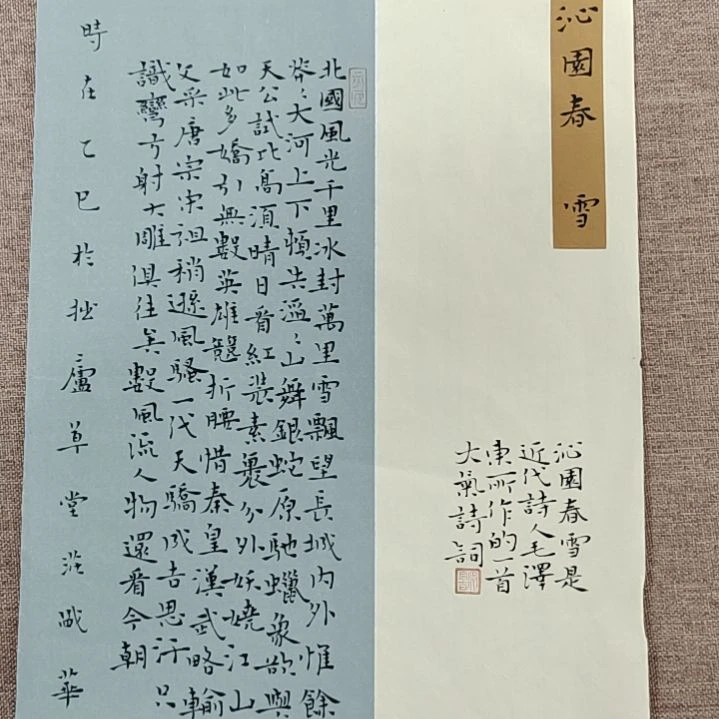 沁園春 雪
沁園春雪是
近代詩人毛澤
東所作的一首
大氣詩詞
北國風光千里冰封萬里雪飄望長城内外惟餘
莽〻大河上下頓失滔〻山舞銀蛇原馳蠟象欲與
天公試比高須晴日看紅裝素裹分外妖嬈江山
如此多嬌引無數英雄競折腰惜秦皇漢武略輸
文采唐宗宋祖稍遜風騷一代天驕成吉思汗只
識彎弓射大雕俱往矣數風流人物還看今朝
時在乙巳於拙〻廬草堂莊華